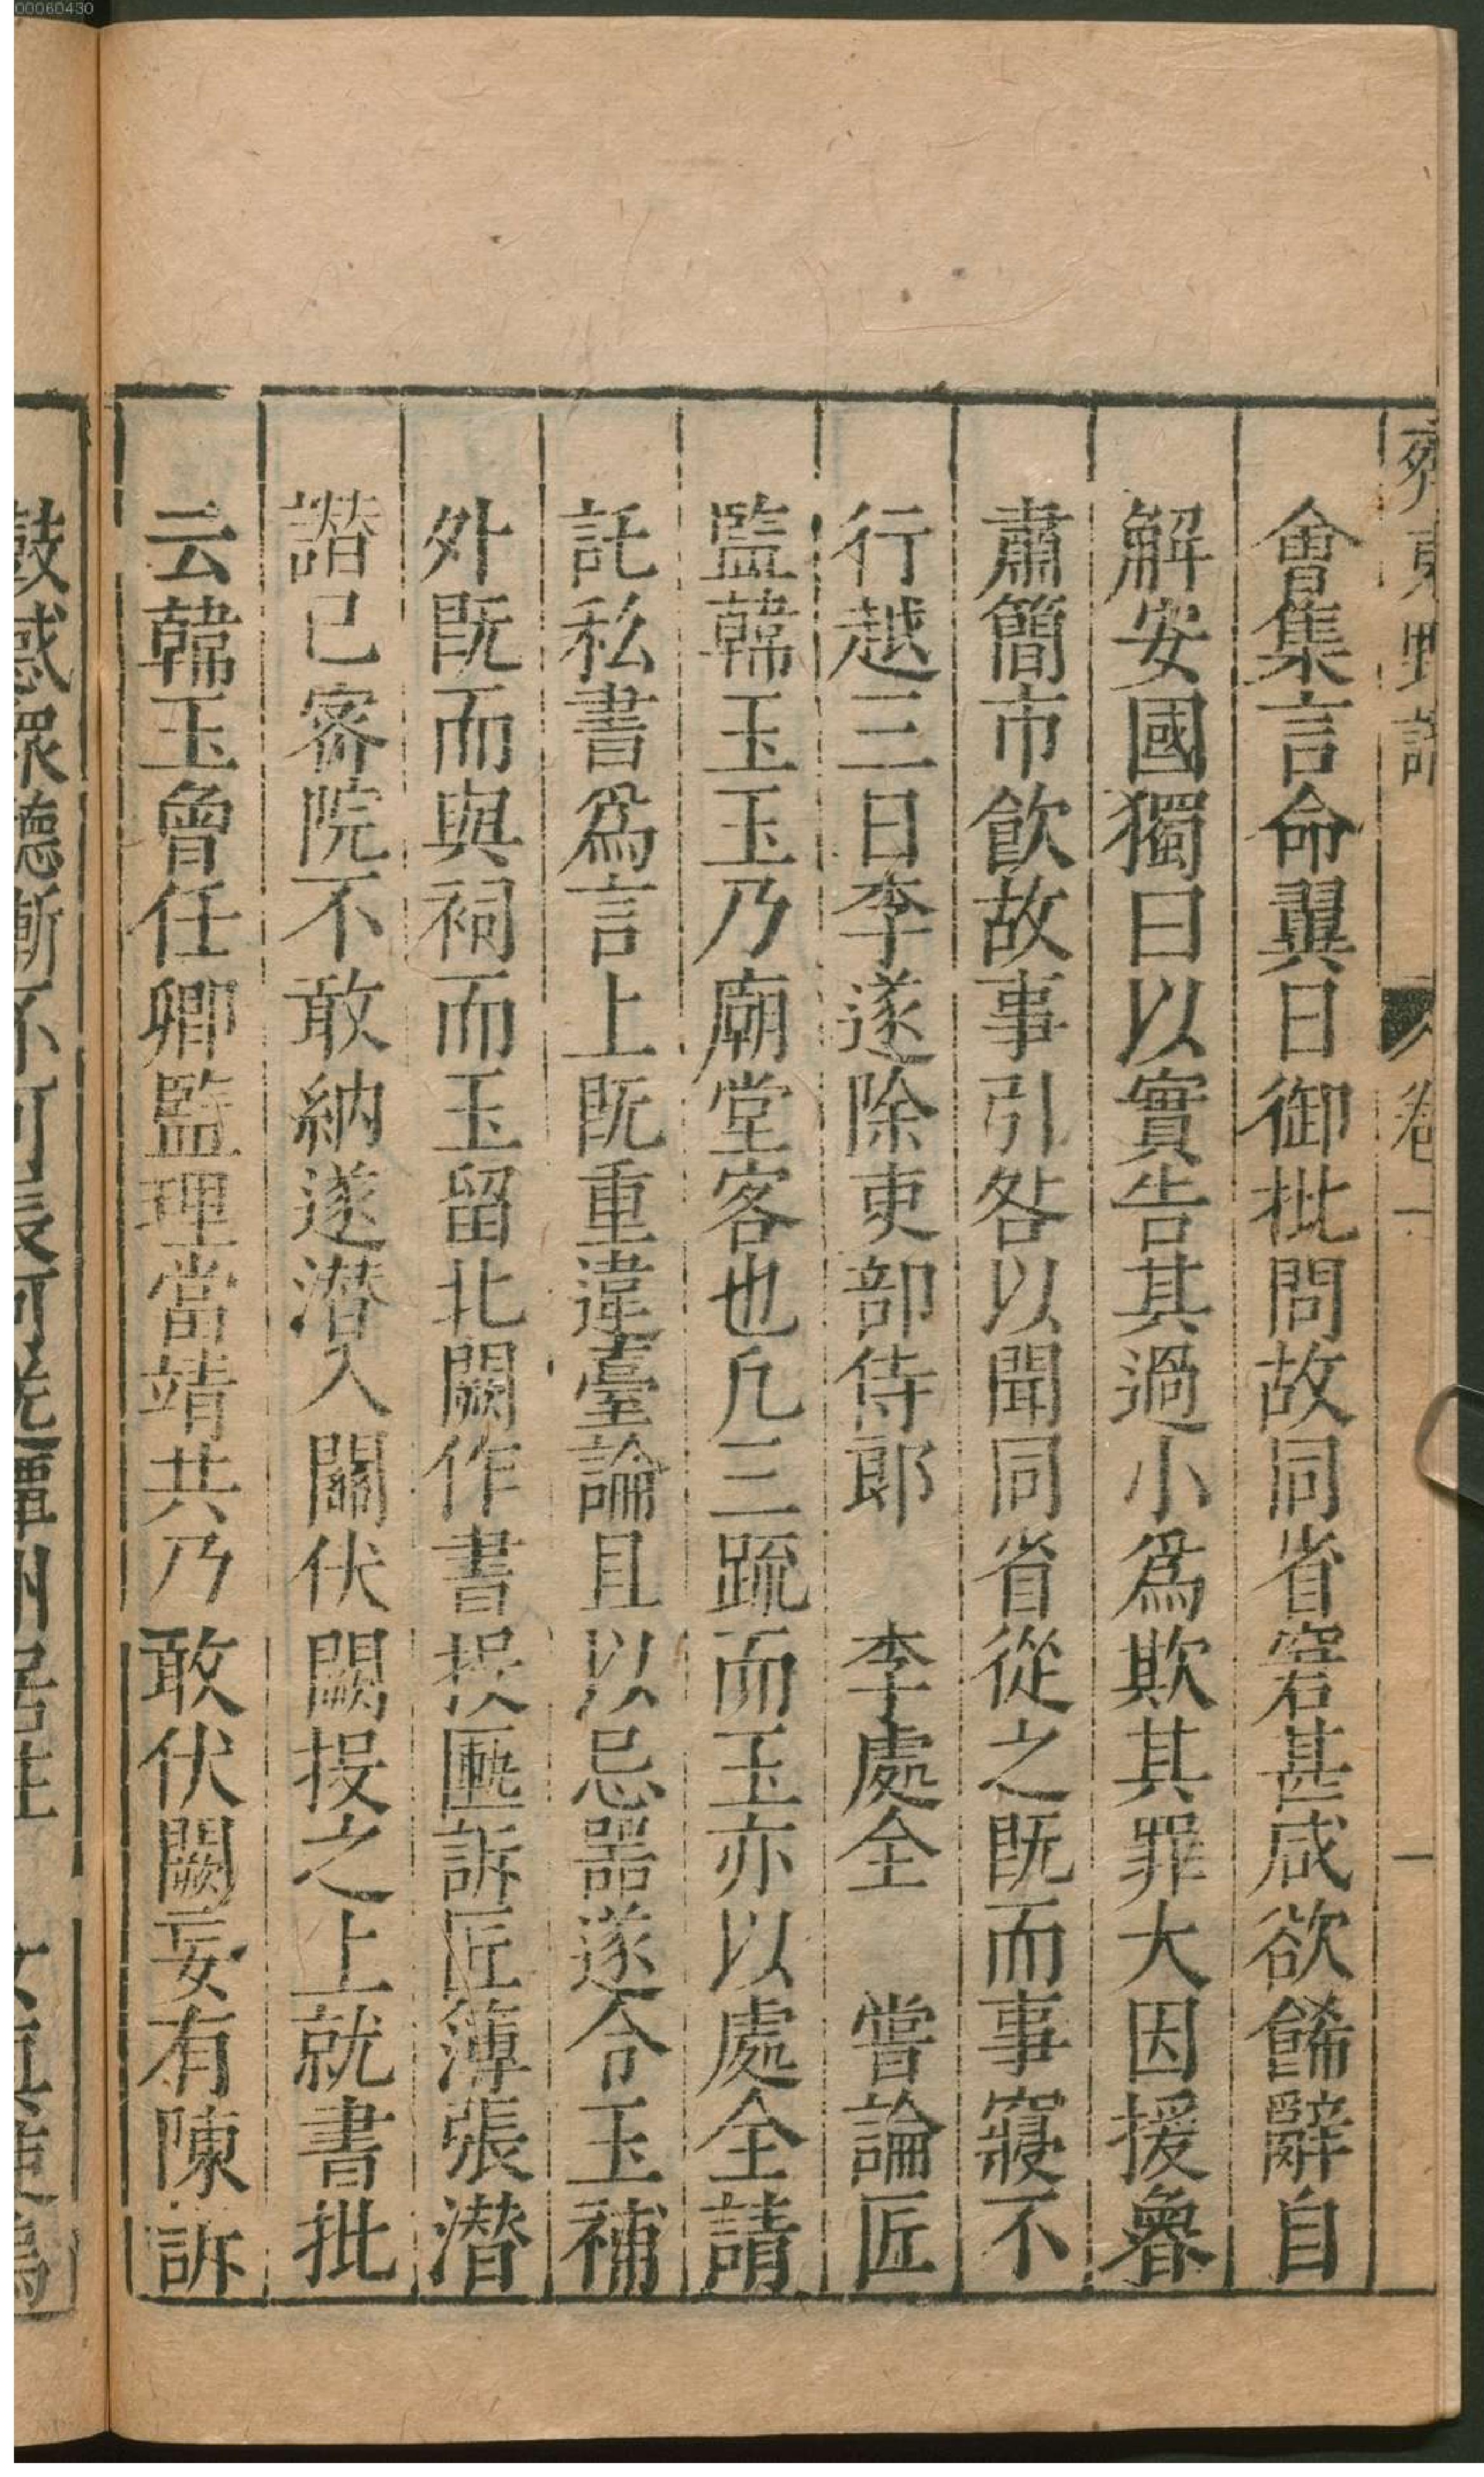 00060430
齊東野語 卷一 一
會集言命翼日御批問故同省窘甚咸欲餙辭自
解安國獨曰以實告其過小爲欺其罪大因援魯
肅簡市飲故事引咎以聞同省從之既而事寢不
行越三日李遂除吏部侍郎 李處全 嘗論匠
監韓玉玉乃廟堂客也凡三疏而玉亦以處全請
託私書爲言上既重違臺論且以忌噐遂令玉補
外既而與祠而玉留北闕作書投匭訴匠簿張潜
譛已宻院不敢納遂潜入關伏闕投之上就書批
云韓玉曾任卿監理當靖共乃敢伏闕妄有陳訴